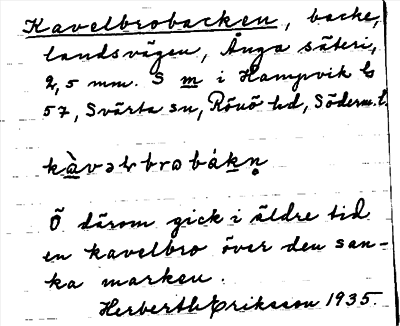 Kavelbrobacken, backe,
landsvägen, Ånga säteri,
2,5 mm. S m i Hampvik lz
57, Svärta sn, Rönö hd, Söderm. l.
kàvəlbrobákn̥
Ö därom gick i äldre tid
en kavelbro över den san-
ka marken.
Herberth Eriksson 1935.